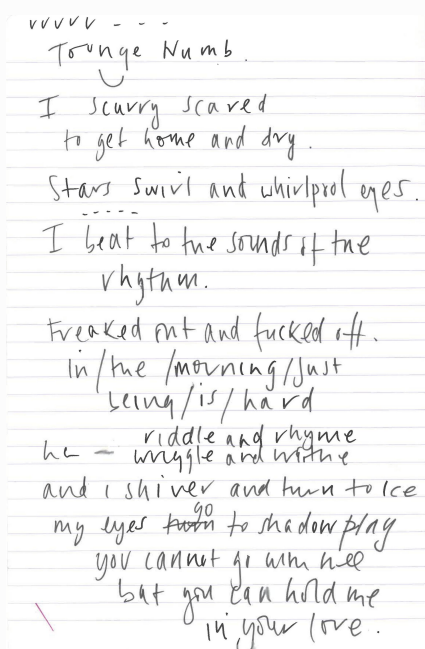 vvvvv - - -
Tounge Numb.
I scurry scared
to get home and dry.
Stars swirl and whirlpool eyes.
-----
I beat to the sounds of the
rhythm.
Freaked out and fucked off.
in/the/morning/Just
being/is/hard
riddle and rhyme
wriggle and writhe
and I shiver and turn to Ice
my eyes turn go to shadow play
you cannot go with me
but you can hold me
in your love.